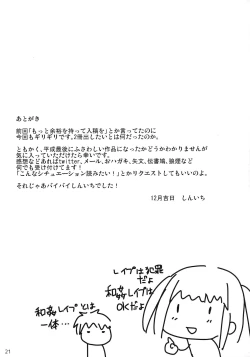 あとがき
前回「もっと余裕を持って入稿を」とか言ってたのに
今回もギリギリです。2冊出したいとは何だったのか。
ともかく、平成最後にふさわしい作品になったかどうかわかりませんが
気に入っていただけたら幸いです。
感想などあればtwitter、メール、おハガキ、矢文、伝書鳩、狼煙など
何でも受け付けてます！
「こんなシチュエーション読みたい！」とかリクエストしてもいいのよ。
それじゃあバイバイしんいちでした！
12月吉日　しんいち
レイプは犯罪
だよ
和姦レイプは
OKだよ
和姦レイプとは
一体…
21